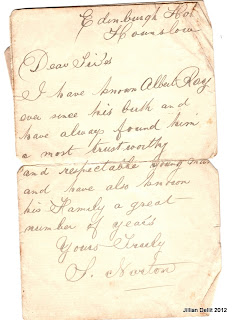 Edinburgh Hot
Hounslow
Dear Sirs
I have known Albert Ray
ever since his birth and
have always found him
a most trustworthy
and respectable young man
and have also known
his Family a great
number of years
Yours Truly
Norton
Jillian Dellit 2012